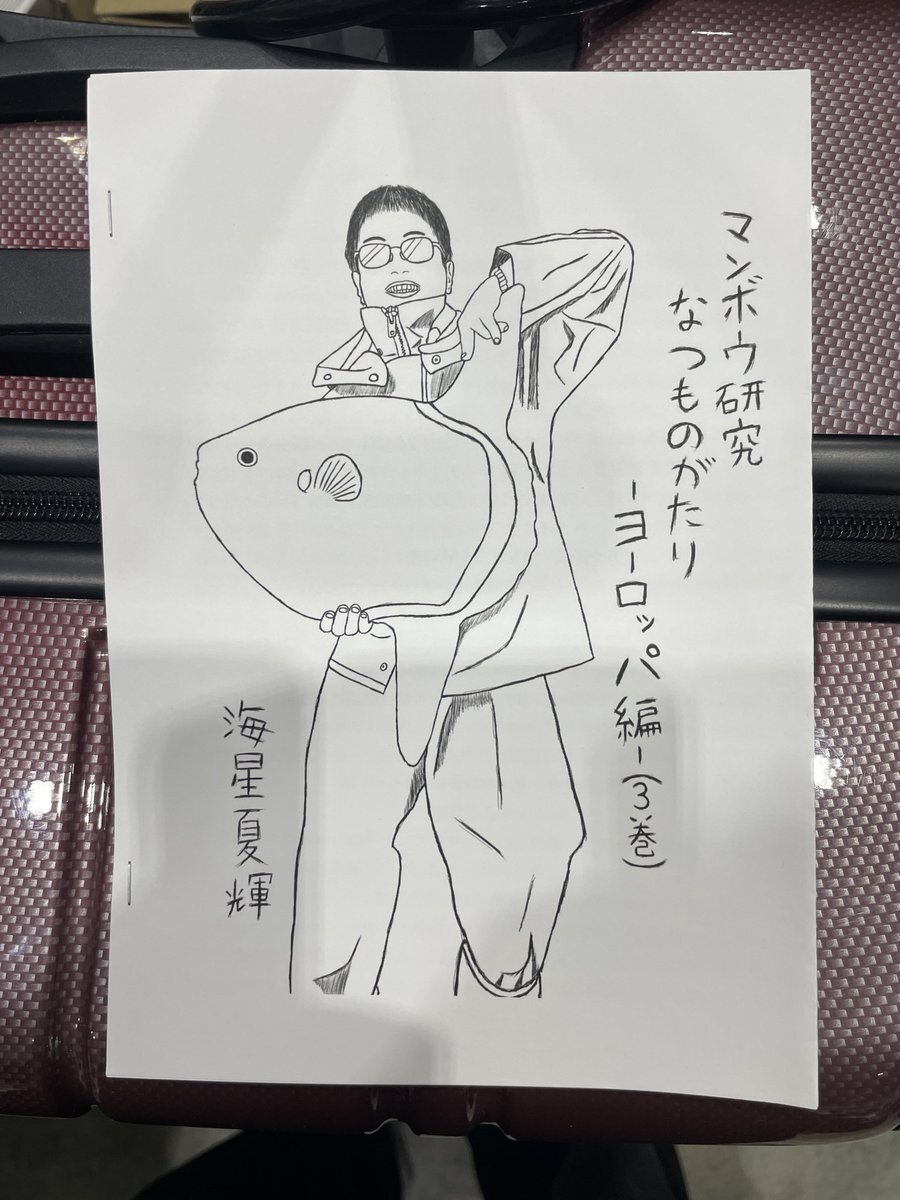 マンボウ研究
なつものがたり
-ヨーロッパ編-(3巻)
海星夏輝